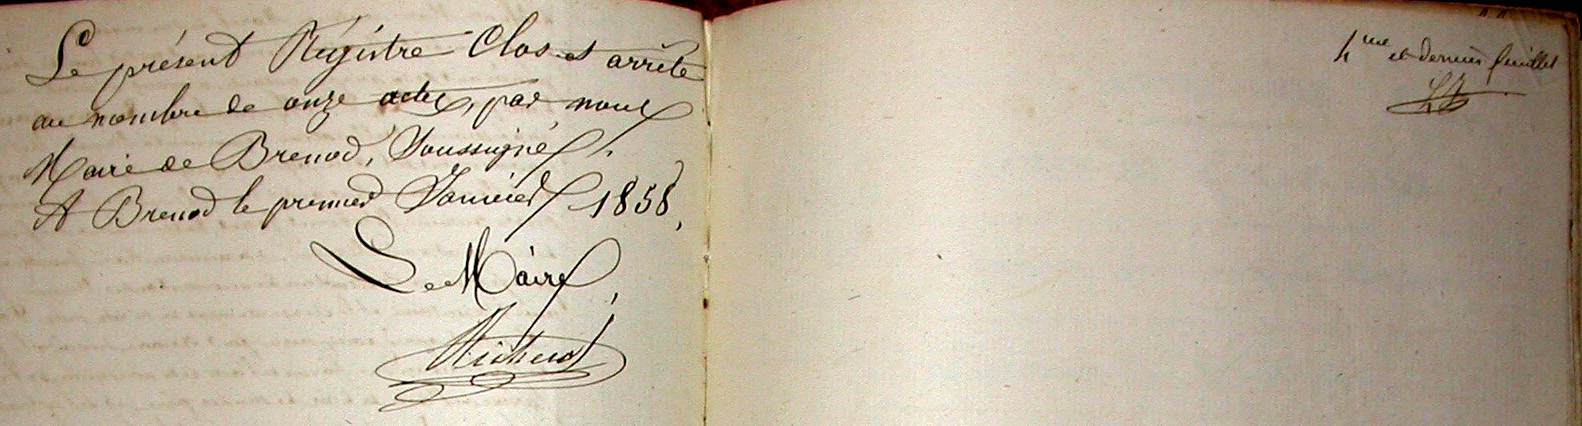 Le présent Régistre Clos et arrêté
au nombre de onze actes, par nous
Maire de Brenod, Soussigné,
A Brenod le premier Janvier 1858,
Le Maire,
4me et dernier feuillet